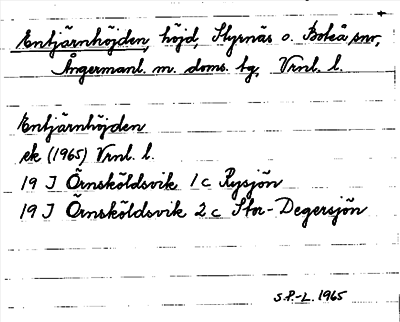 Entjärnhöjden, höjd, Styrnäs o. Boteå snr,
Ångermanl. m. doms. tg, Vrnl. l.
Entjärnhöjden
ek (1965) Vrnl. l.
19 J Örnsköldsvik 1 c Rysjön
19 J Örnsköldsvik 2 c Stor-Degersjön
S.P.-L. 1965